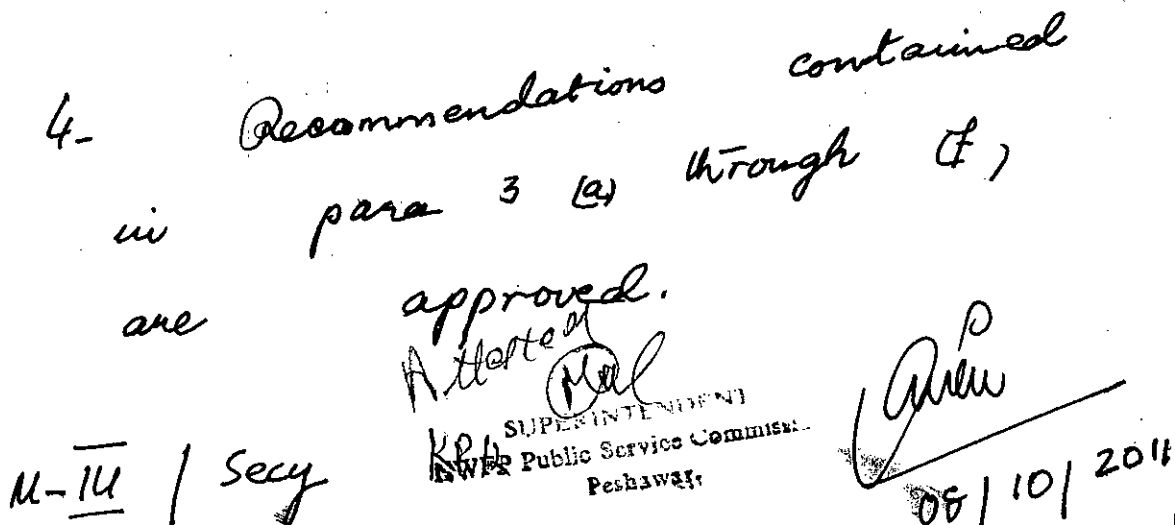 4- Recommendations contained
in para 3 (a) through (f)
are approved.
Attested
SUPERINTENDENT
NWFP Public Service Commiss
Peshawar
M-III / Secy
08/10/2011